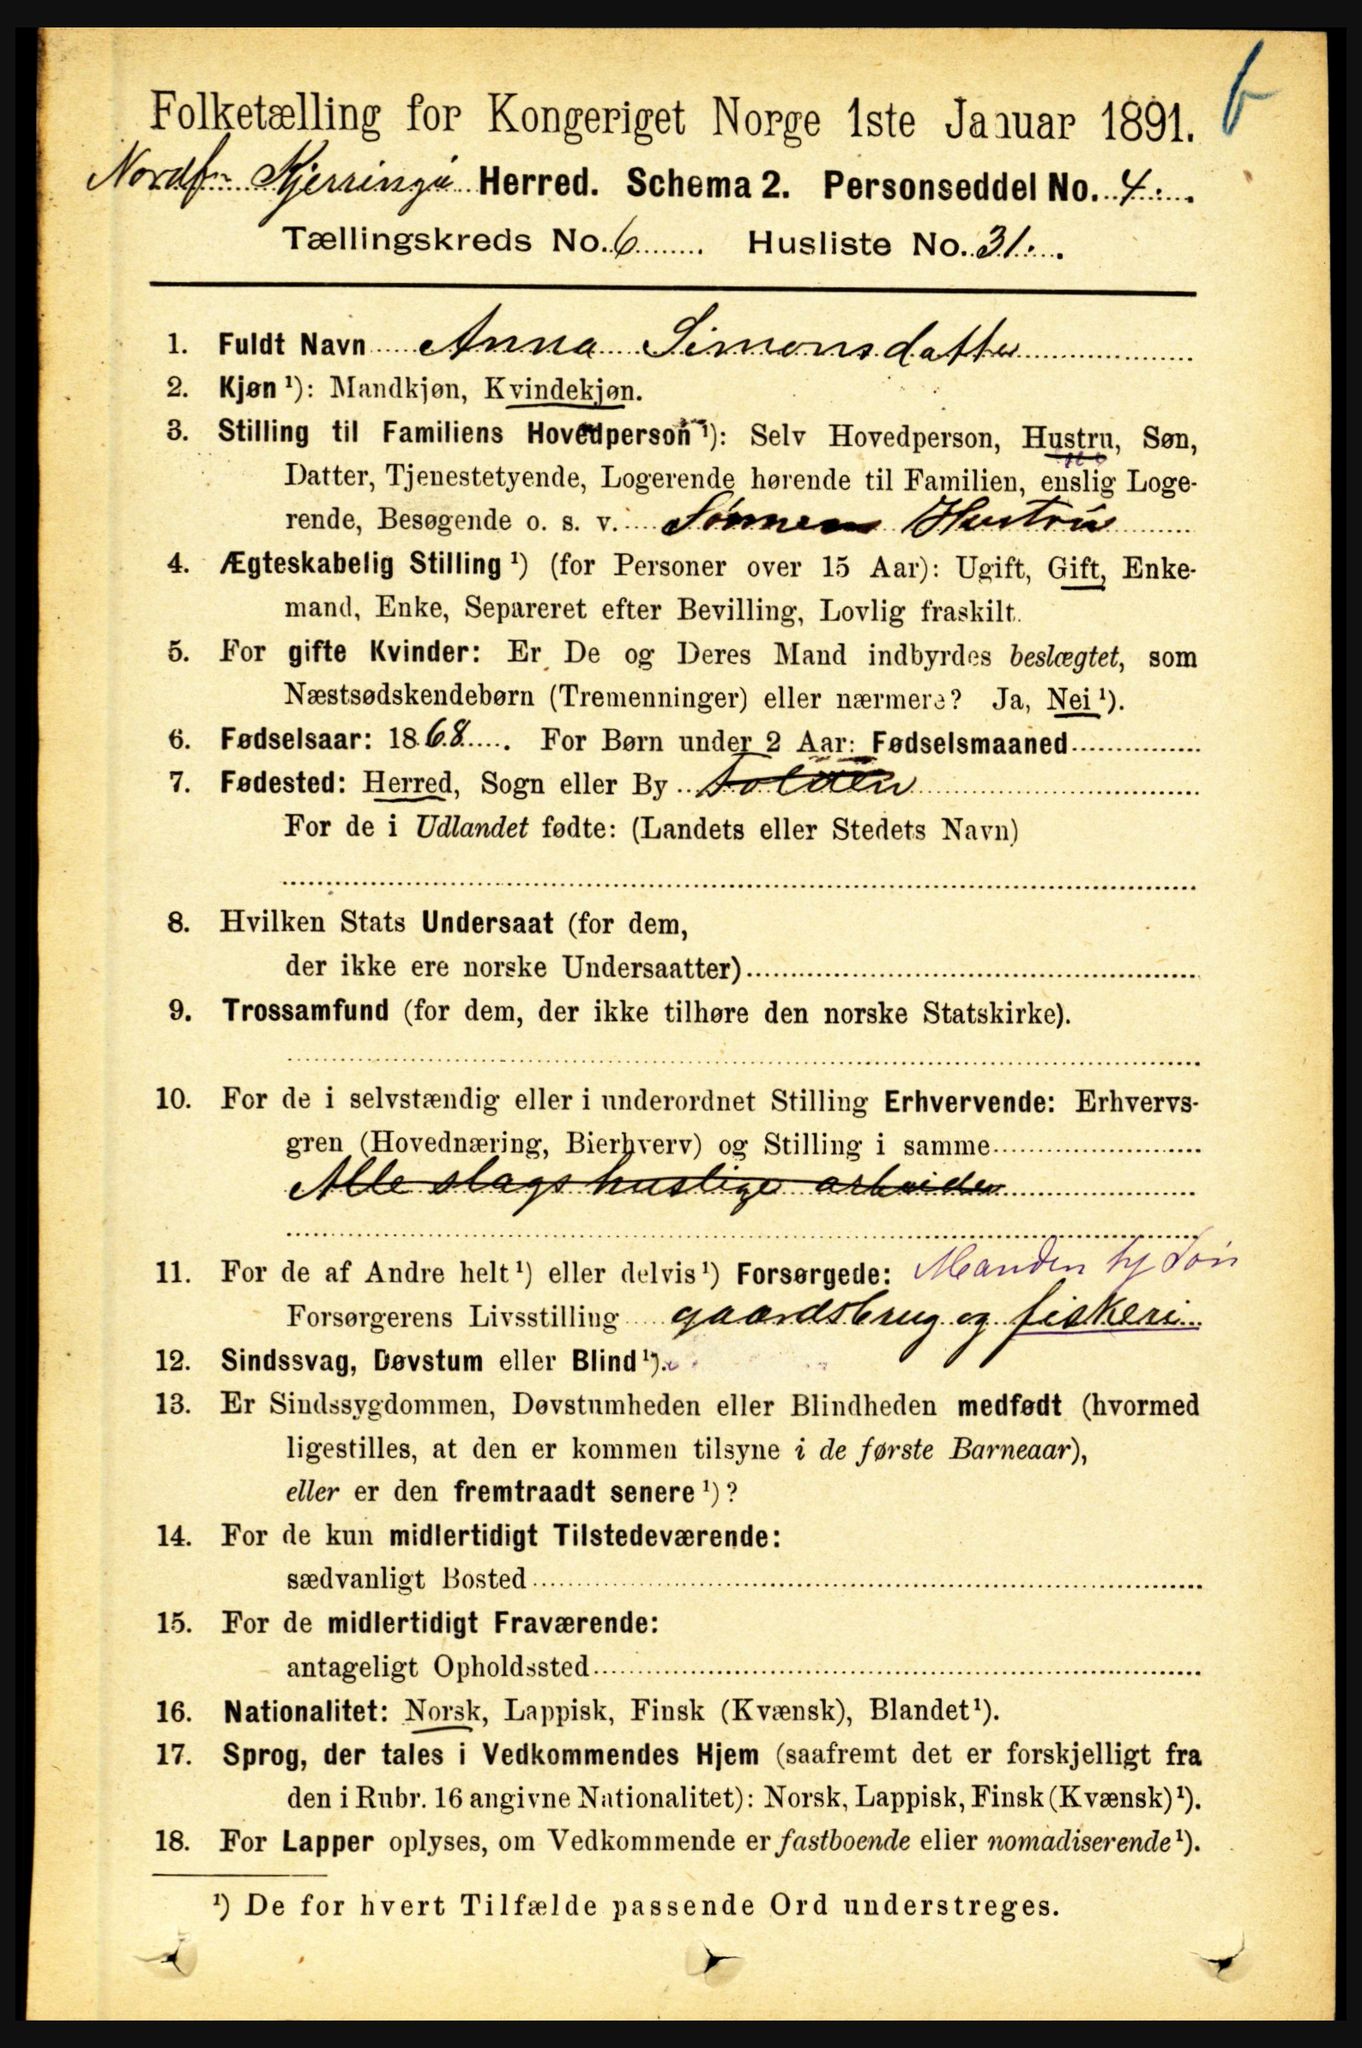 b
Folketælling for Kongeriget Norge 1ste Januar 1891.
Nordf. Kjerringø Herred. Schema 2. Personseddel No. 4.
Tællingskreds No. 6 Husliste No. 31.
1. Fuldt Navn Anna Simonsdatter
2. Kjøn ¹): Mandkjøn, Kvindekjøn.
3. Stilling til Familiens Hovedperson ¹): Selv Hovedperson, Hustru, Søn,
Datter, Tjenestetyende, Logerende hørende til Familien, enslig Loge-
rende, Besøgende o. s. v. Sønnens Hustru
4. Ægteskabelig Stilling ¹) (for Personer over 15 Aar): Ugift, Gift, Enke-
mand, Enke, Separeret efter Bevilling, Lovlig fraskilt.
5. For gifte Kvinder: Er De og Deres Mand indbyrdes beslægtet, som
Næstsødskendebørn (Tremenninger) eller nærmere? Ja, Nei ¹).
6. Fødselsaar: 1868. For Børn under 2 Aar: Fødselsmaaned
7. Fødested: Herred, Sogn eller By Folden
For de i Udlandet fødte: (Landets eller Stedets Navn)
8. Hvilken Stats Undersaat (for dem,
der ikke ere norske Undersaatter)
9. Trossamfund (for dem, der ikke tilhøre den norske Statskirke).
10. For de i selvstændig eller i underordnet Stilling Erhvervende: Erhvervs-
gren (Hovednæring, Bierhverv) og Stilling i samme
Alle slags huslige arbeider
11. For de af Andre helt ¹) eller delvis ¹) Forsørgede: Manden hj Søn
Forsørgerens Livsstilling gaardsbrug og fiskeri
12. Sindssvag, Døvstum eller Blind ¹).
13. Er Sindssygdommen, Døvstumheden eller Blindheden medfødt (hvormed
ligestilles, at den er kommen tilsyne i de første Barneaar),
eller er den fremtraadt senere ¹)?
14. For de kun midlertidigt Tilstedeværende:
sædvanligt Bosted
15. For de midlertidigt Fraværende:
antageligt Opholdssted
16. Nationalitet: Norsk, Lappisk, Finsk (Kvænsk), Blandet ¹).
17. Sprog, der tales i Vedkommendes Hjem (saafremt det er forskjelligt fra
den i Rubr. 16 angivne Nationalitet): Norsk, Lappisk, Finsk (Kvænsk) ¹).
18. For Lapper oplyses, om Vedkommende er fastboende eller nomadiserende ¹).
¹) De for hvert Tilfælde passende Ord understreges.